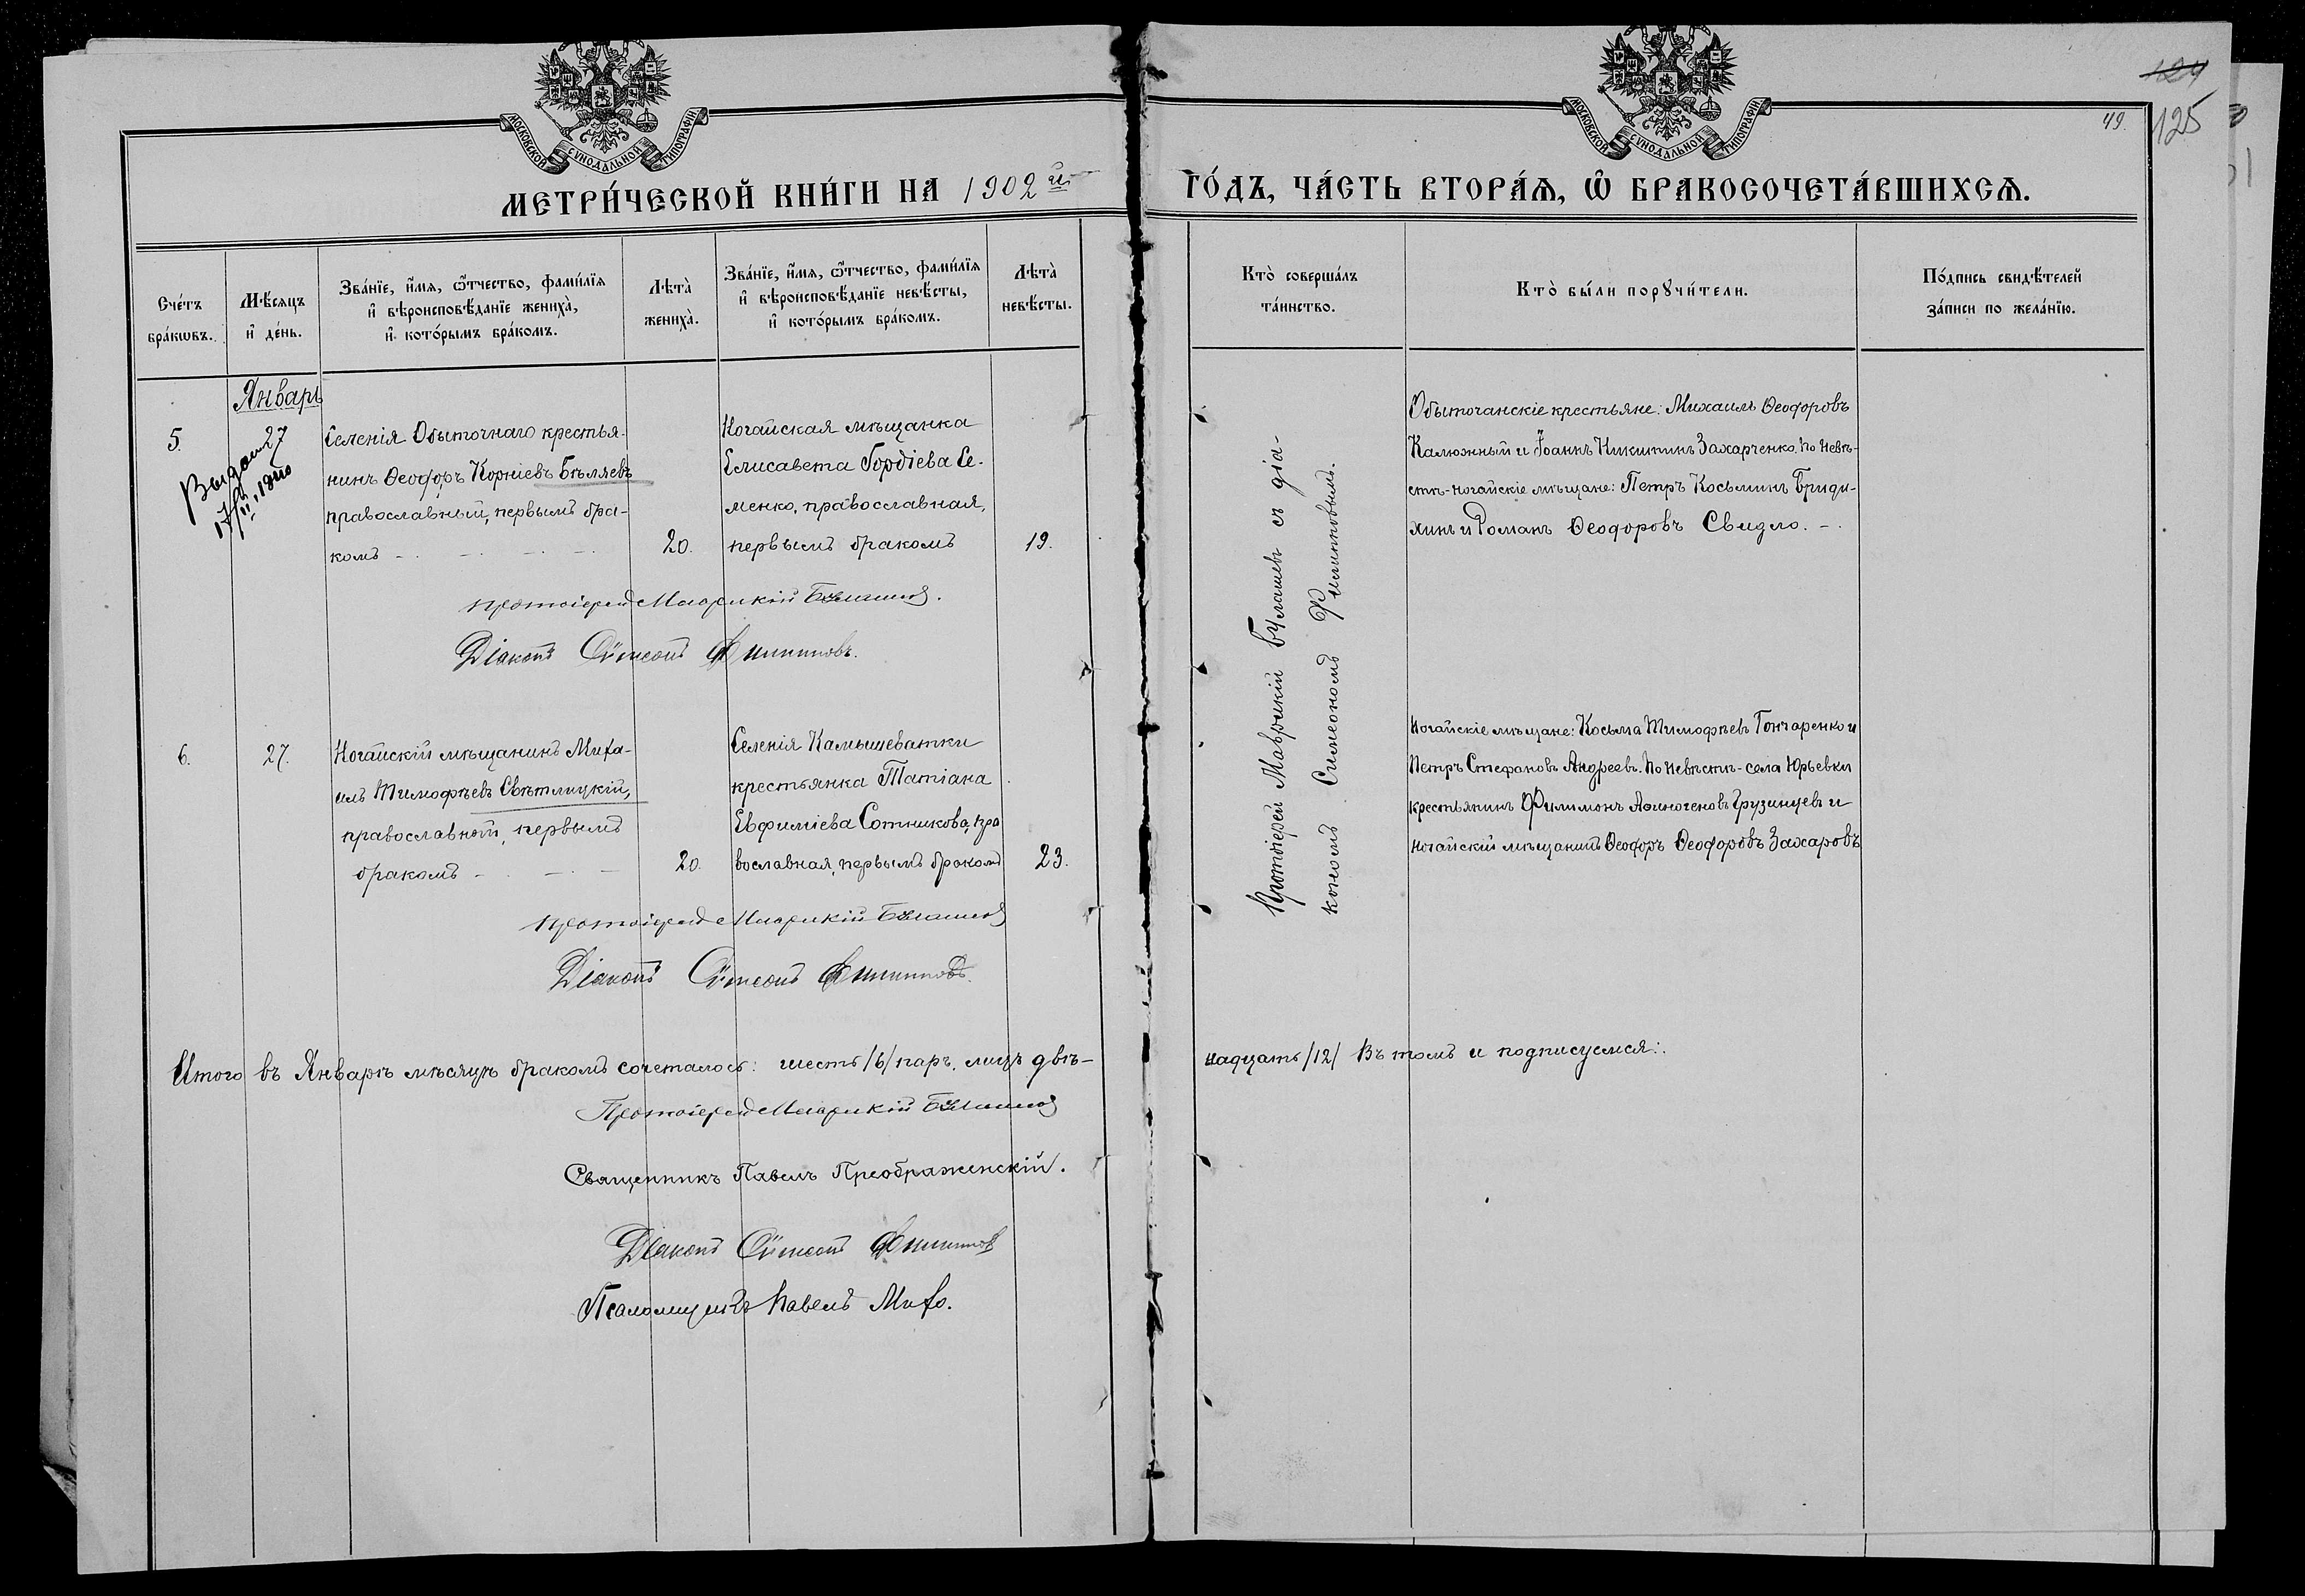 МОСКОВСКОЙ СѴНОДАЛЬНОЙ ТИПОГРАФІИ
МОСКОВСКОЙ СѴНОДАЛЬНОЙ ТИПОГРАФІИ
124
125
49.
МЕТРИ́ЧЕСКОЙ КНИ́ГИ НА 1902 й
ГО́ДЪ, ЧА́СТЬ ВТОРА́Ѧ, Ѡ҆ БРАКОСОЧЕТА́ВШИХСѦ.
Сче́тъ
бра́кѡвъ.
Мѣ́сѧцъ
и҆ де́нь.
Зва́нїе, и҆́мѧ, ѻ҆́тчество, фами́лїѧ
и҆ вѣроисповѣ́данїе жениха̀,
и҆ кото́рымъ бра́комъ.
Лѣта̀
жениха̀.
Зва́нїе, и҆́мѧ, ѻ҆́тчество, фами́лїѧ
и҆ вѣроисповѣ́данїе невѣ́сты,
и҆ кото́рымъ бра́комъ.
Лѣта̀
невѣ́сты.
Кто̀ соверша́лъ
та́инство.
Кто̀ бы́ли порꙋчи́тели.
По́дпись свидѣ́телей
за́писи по жела́нїю.
Январь
5.
27
Селенія Обыточнаго крестья-
нинъ Ѳеодоръ Корніевъ Бѣляевъ
православный, первымъ бра-
комъ
20.
Ногайская мѣщанка
Елисавета Гордіева Се-
менко, православная,
первымъ бракомъ
19.
Протоіерей Маврикій Булашевъ съ діа-
кономъ Симеономъ Филипповымъ.
Обыточанскіе крестьяне: Михаилъ Ѳеодоровъ
Калюжный и Іоаннъ Никитинъ Захарченко. По невѣ-
стѣ - ногайскіе мѣщане: Петръ Косьминъ Бриди-
хинъ и Романъ Ѳеодоровъ Свидло.
протоіерей Маврикій Булашевъ.
Діаконъ Сѵмеонъ Филипповъ.
6.
27.
Ногайскій мѣщанинъ Миха-
илъ Тимоѳеевъ Свѣтлицкій,
православный, первымъ
бракомъ
20.
Селенія Камышеватки
крестьянка Татіана
Евфиміева Сотникова, пра
вославная, первымъ бракомъ
23.
Ногайскіе мѣщане: Косьма Тимоѳеевъ Гончаренко и
Петръ Стефановъ Андреевъ. По невѣстѣ - села Юрьевки
крестьянинъ Филимонъ Аѳиногеновъ Грузинцевъ и
ногайскій мѣщанинъ Ѳеодоръ Ѳеодоровъ Захаровъ
протоіерей Маврикій Булашевъ
Діаконъ Сѵмеонъ Филипповъ.
Итого въ Январѣ мѣсяцѣ бракомъ сочеталось: шесть /6/ паръ, лицъ двѣ-
надцать /12/ Въ томъ и подписуемся:
Протоіерей Маврикій Булашевъ
Священникъ Павелъ Преображенскій.
Діаконъ Сѵмеонъ Филипповъ
Псаломщикъ Павелъ Михо.